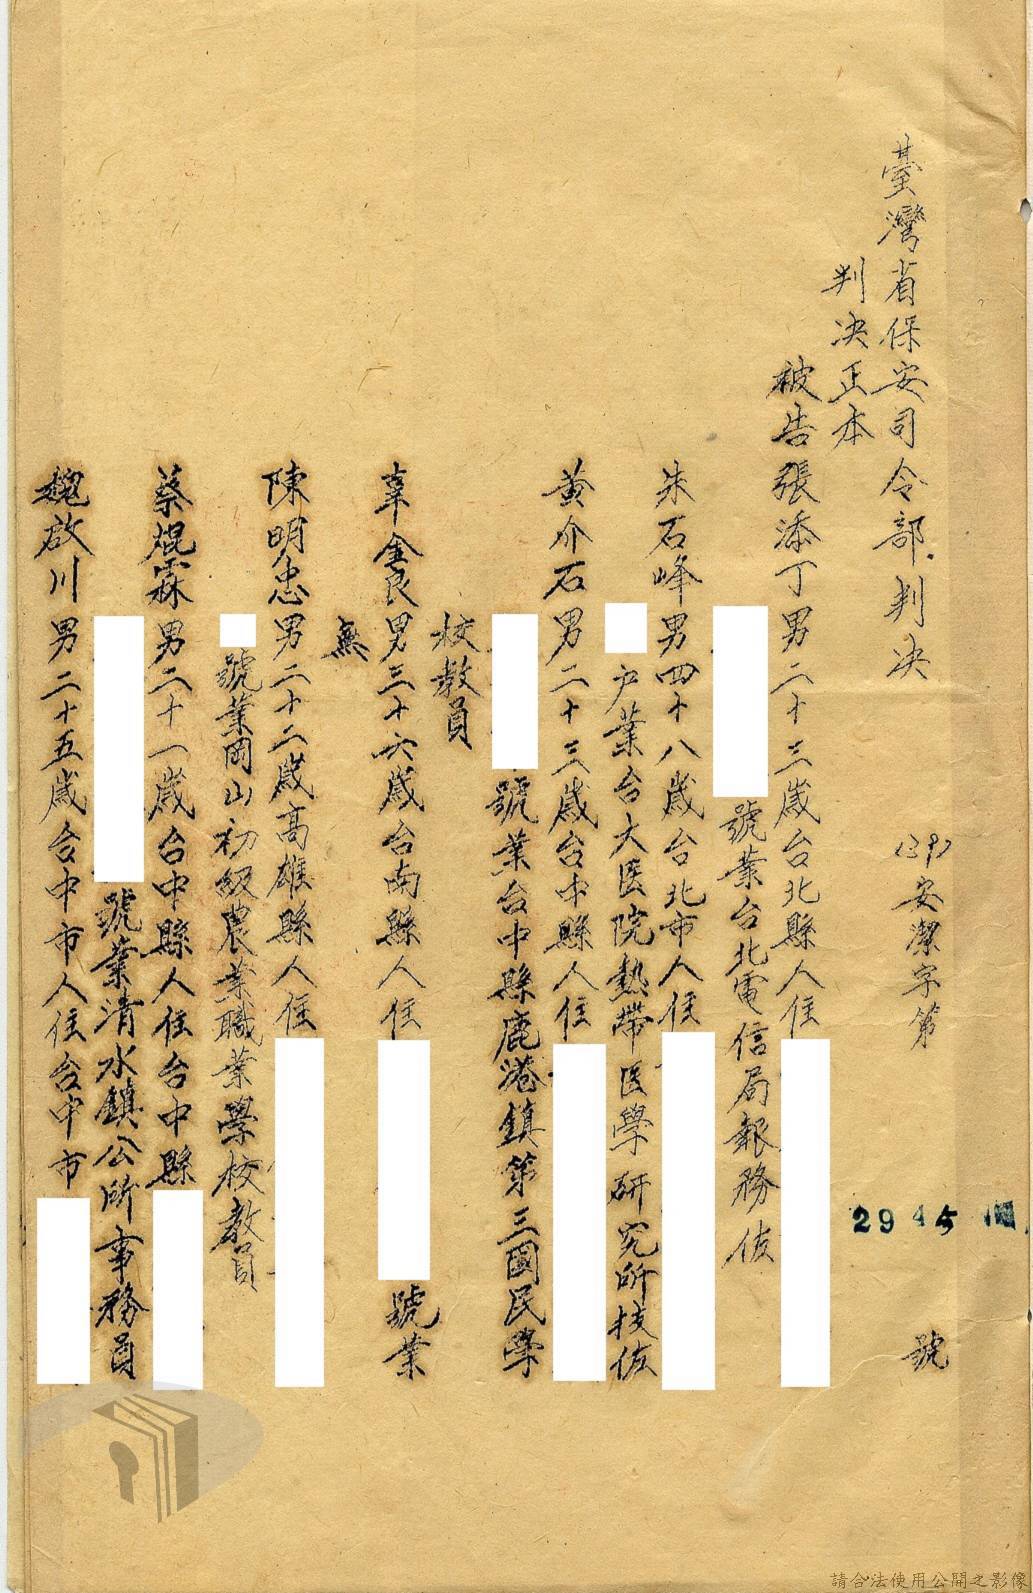 臺灣省保安司令部判決
(39)安潔字第 2945 號
判決正本
被告張添丁男二十三歲台北縣人住
號業台北電信局報務佐
朱石峰男四十八歲台北市人住
户業台大医院熱帶医學研究所技佐
黃介石男二十三歲台中縣人住
號業台中縣鹿港鎮第三國民學
校教員
辜金良男三十六歲台南縣人住 號業
無
陳明忠男二十二歲高雄縣人住
號業岡山初級農業職業學校教員
蔡焜霖男二十一歲台中縣人住台中縣
號業清水鎮公所事務員
魏啟川男二十五歲台中市人住台中市
請合法使用公開之影像